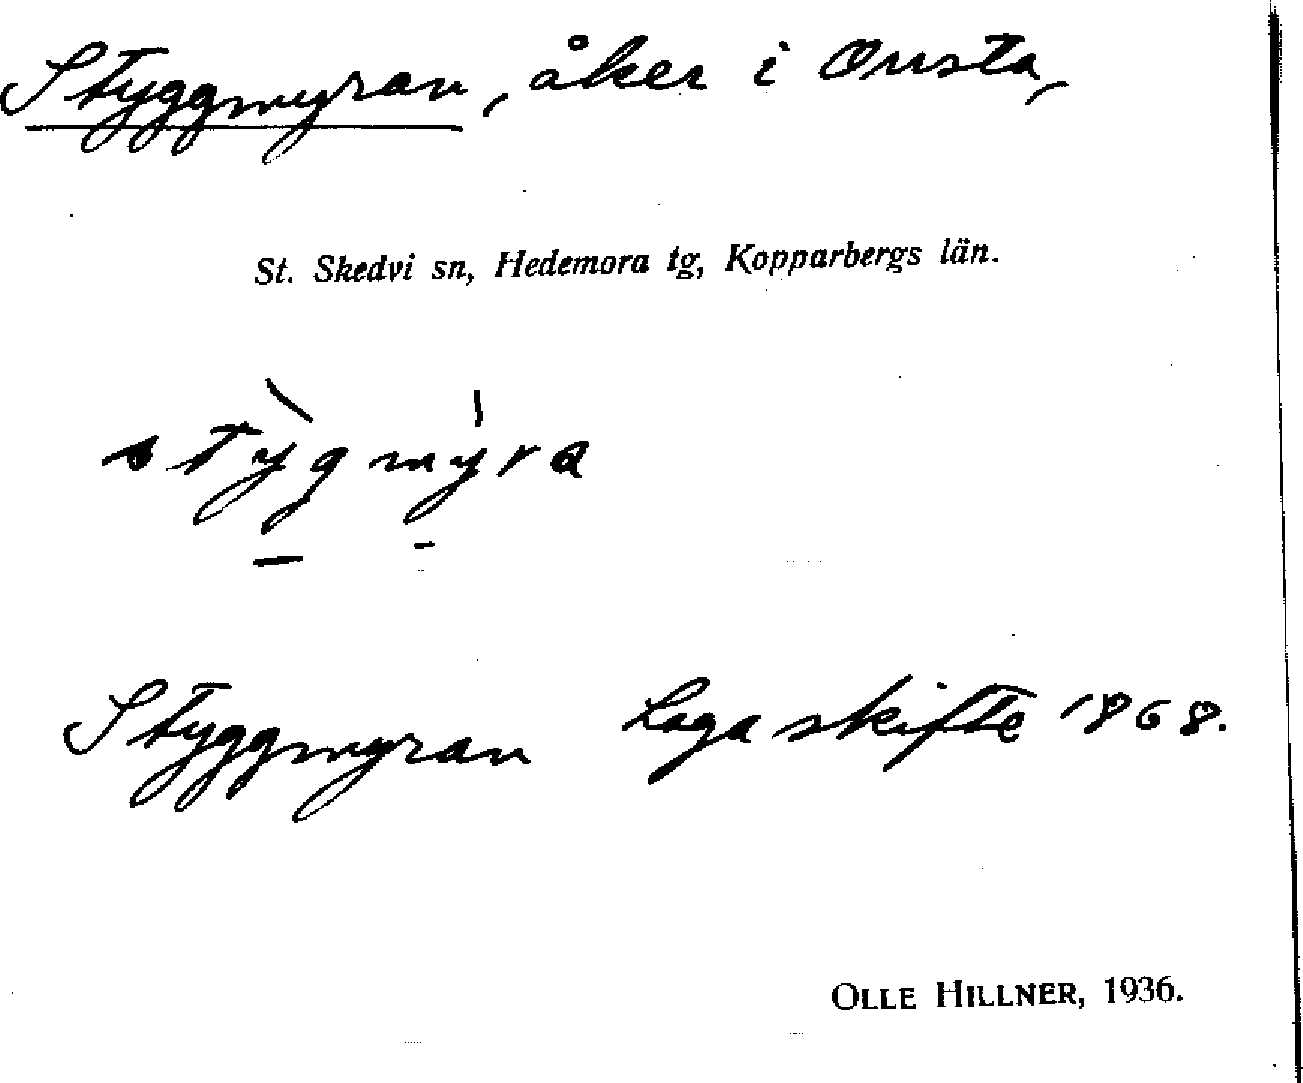 Styggmyran, åker i Onsta,
St. Skedvi sn, Hedemora tg, Kopparbergs län.
stỳgmýra
Styggmyran Laga skifte 1868.
OLLE HILLNER, 1936.